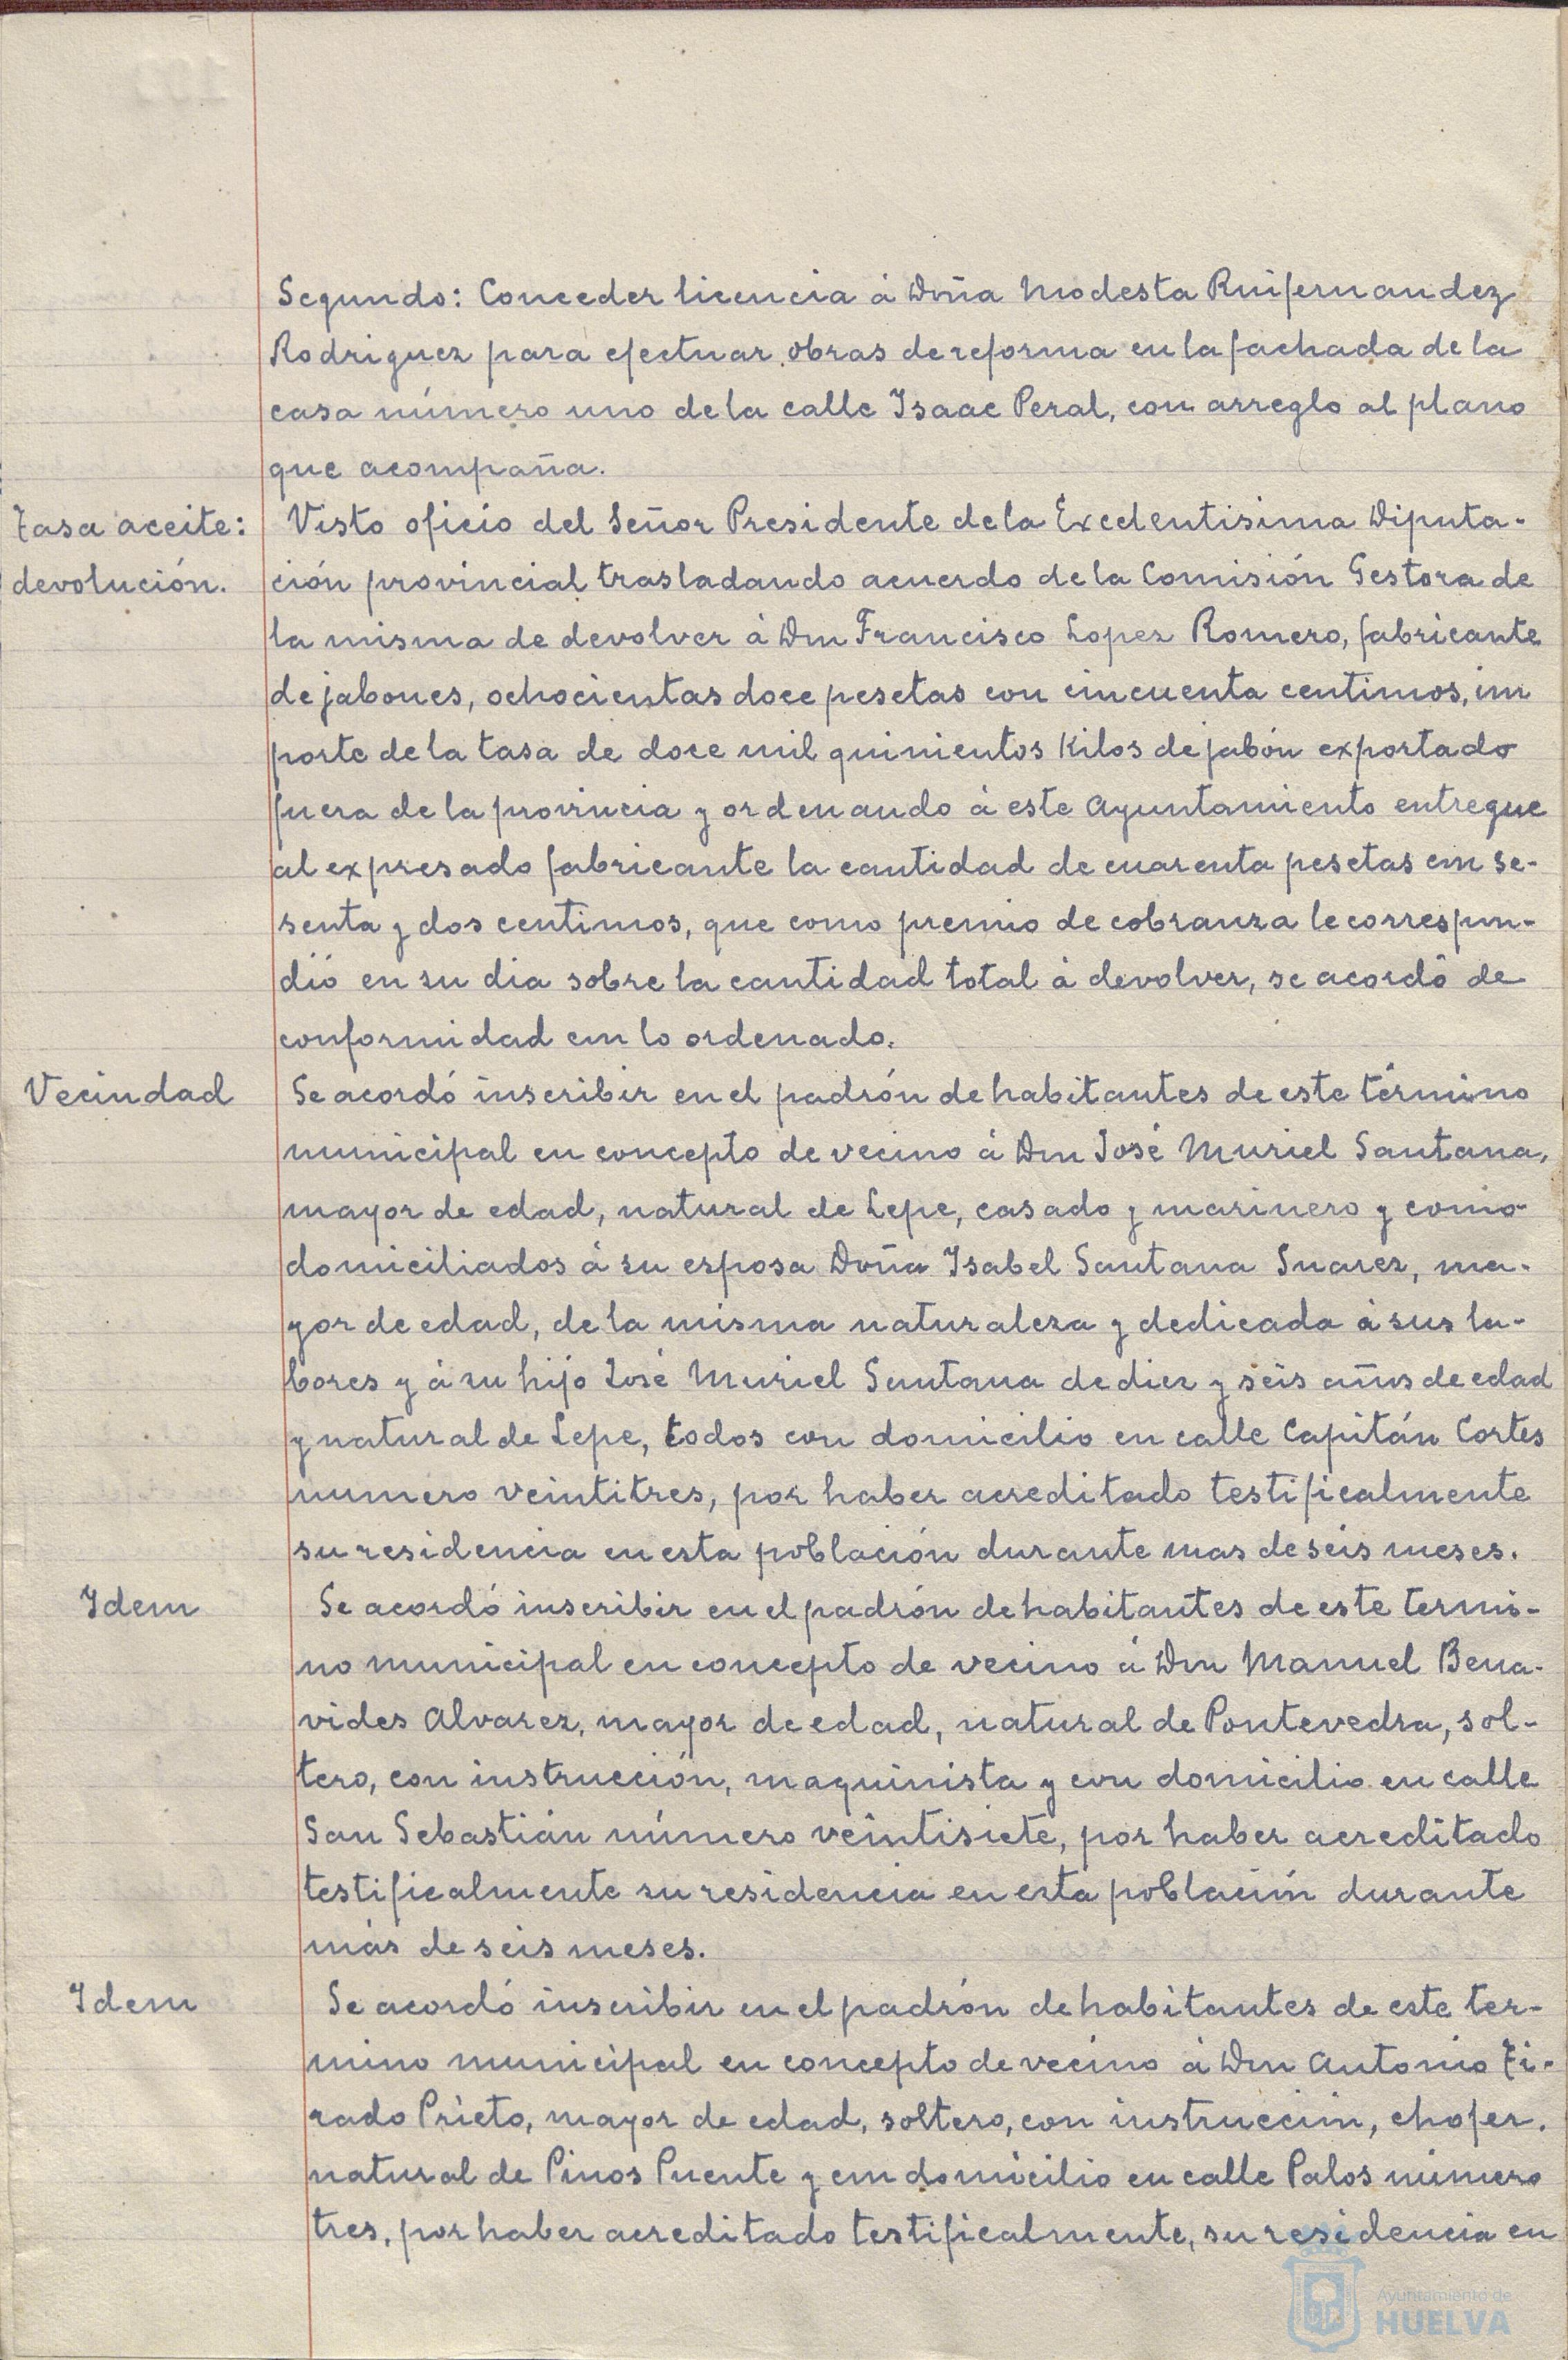 Segundo: Conceder licencia á Doña Modesta Ruifernandez
Rodriguez para efectuar obras de reforma en la fachada de la
casa número uno de la calle Isaac Peral, con arreglo al plano
que acompaña.
Tasa aceite:
devolución.
Visto oficio del Señor Presidente de la Excelentisima Diputa-
ción provincial trasladando acuerdo de la Comisión Gestora de
la misma de devolver á Don Francisco Lopez Romero, fabricante
de jabones, ochocientas doce pesetas con cincuenta centimos, im
porte de la tasa de doce mil quinientos Kilos de jabón exportado
fuera de la provincia y ordenando á este Ayuntamiento entregue
al expresado fabricante la cantidad de cuarenta pesetas con se-
senta y dos centimos, que como premio de cobranza le correspon-
dió en su dia sobre la cantidad total á devolver, se acordó de
conformidad con lo ordenado.
Vecindad
Se acordó inscribir en el padrón de habitantes de este término
municipal en concepto de vecino á Don José Muriel Santana,
mayor de edad, natural de Lepe, casado y marinero y como
domiciliados á su esposa Doña Isabel Santana Suarez, ma-
yor de edad, de la misma naturaleza y dedicada á sus la-
bores y á su hijo José Muriel Santana de diez y seis años de edad
y natural de Lepe, todos con domicilio en calle Capitán Cortes
numero veintitres, por haber acreditado testificalmente
su residencia en esta población durante mas de seis meses.
Idem
Se acordó inscribir en el padrón de habitantes de este termi-
no municipal en concepto de vecino á Don Manuel Bena-
vides Alvarez, mayor de edad, natural de Pontevedra, sol-
tero, con instrucción, maquinista y con domicilio en calle
San Sebastián número veintisiete, por haber acreditado
testificalmente su residencia en esta población durante
más de seis meses.
Idem
Se acordó inscribir en el padrón de habitantes de este ter-
mino municipal en concepto de vecino á Don Antonio Ti-
rado Prieto, mayor de edad, soltero, con instrucción, chofer,
natural de Pinos Puente y con domicilio en calle Palos número
tres, por haber acreditado testificalmente, su residencia en
Ayuntamiento de
HUELVA